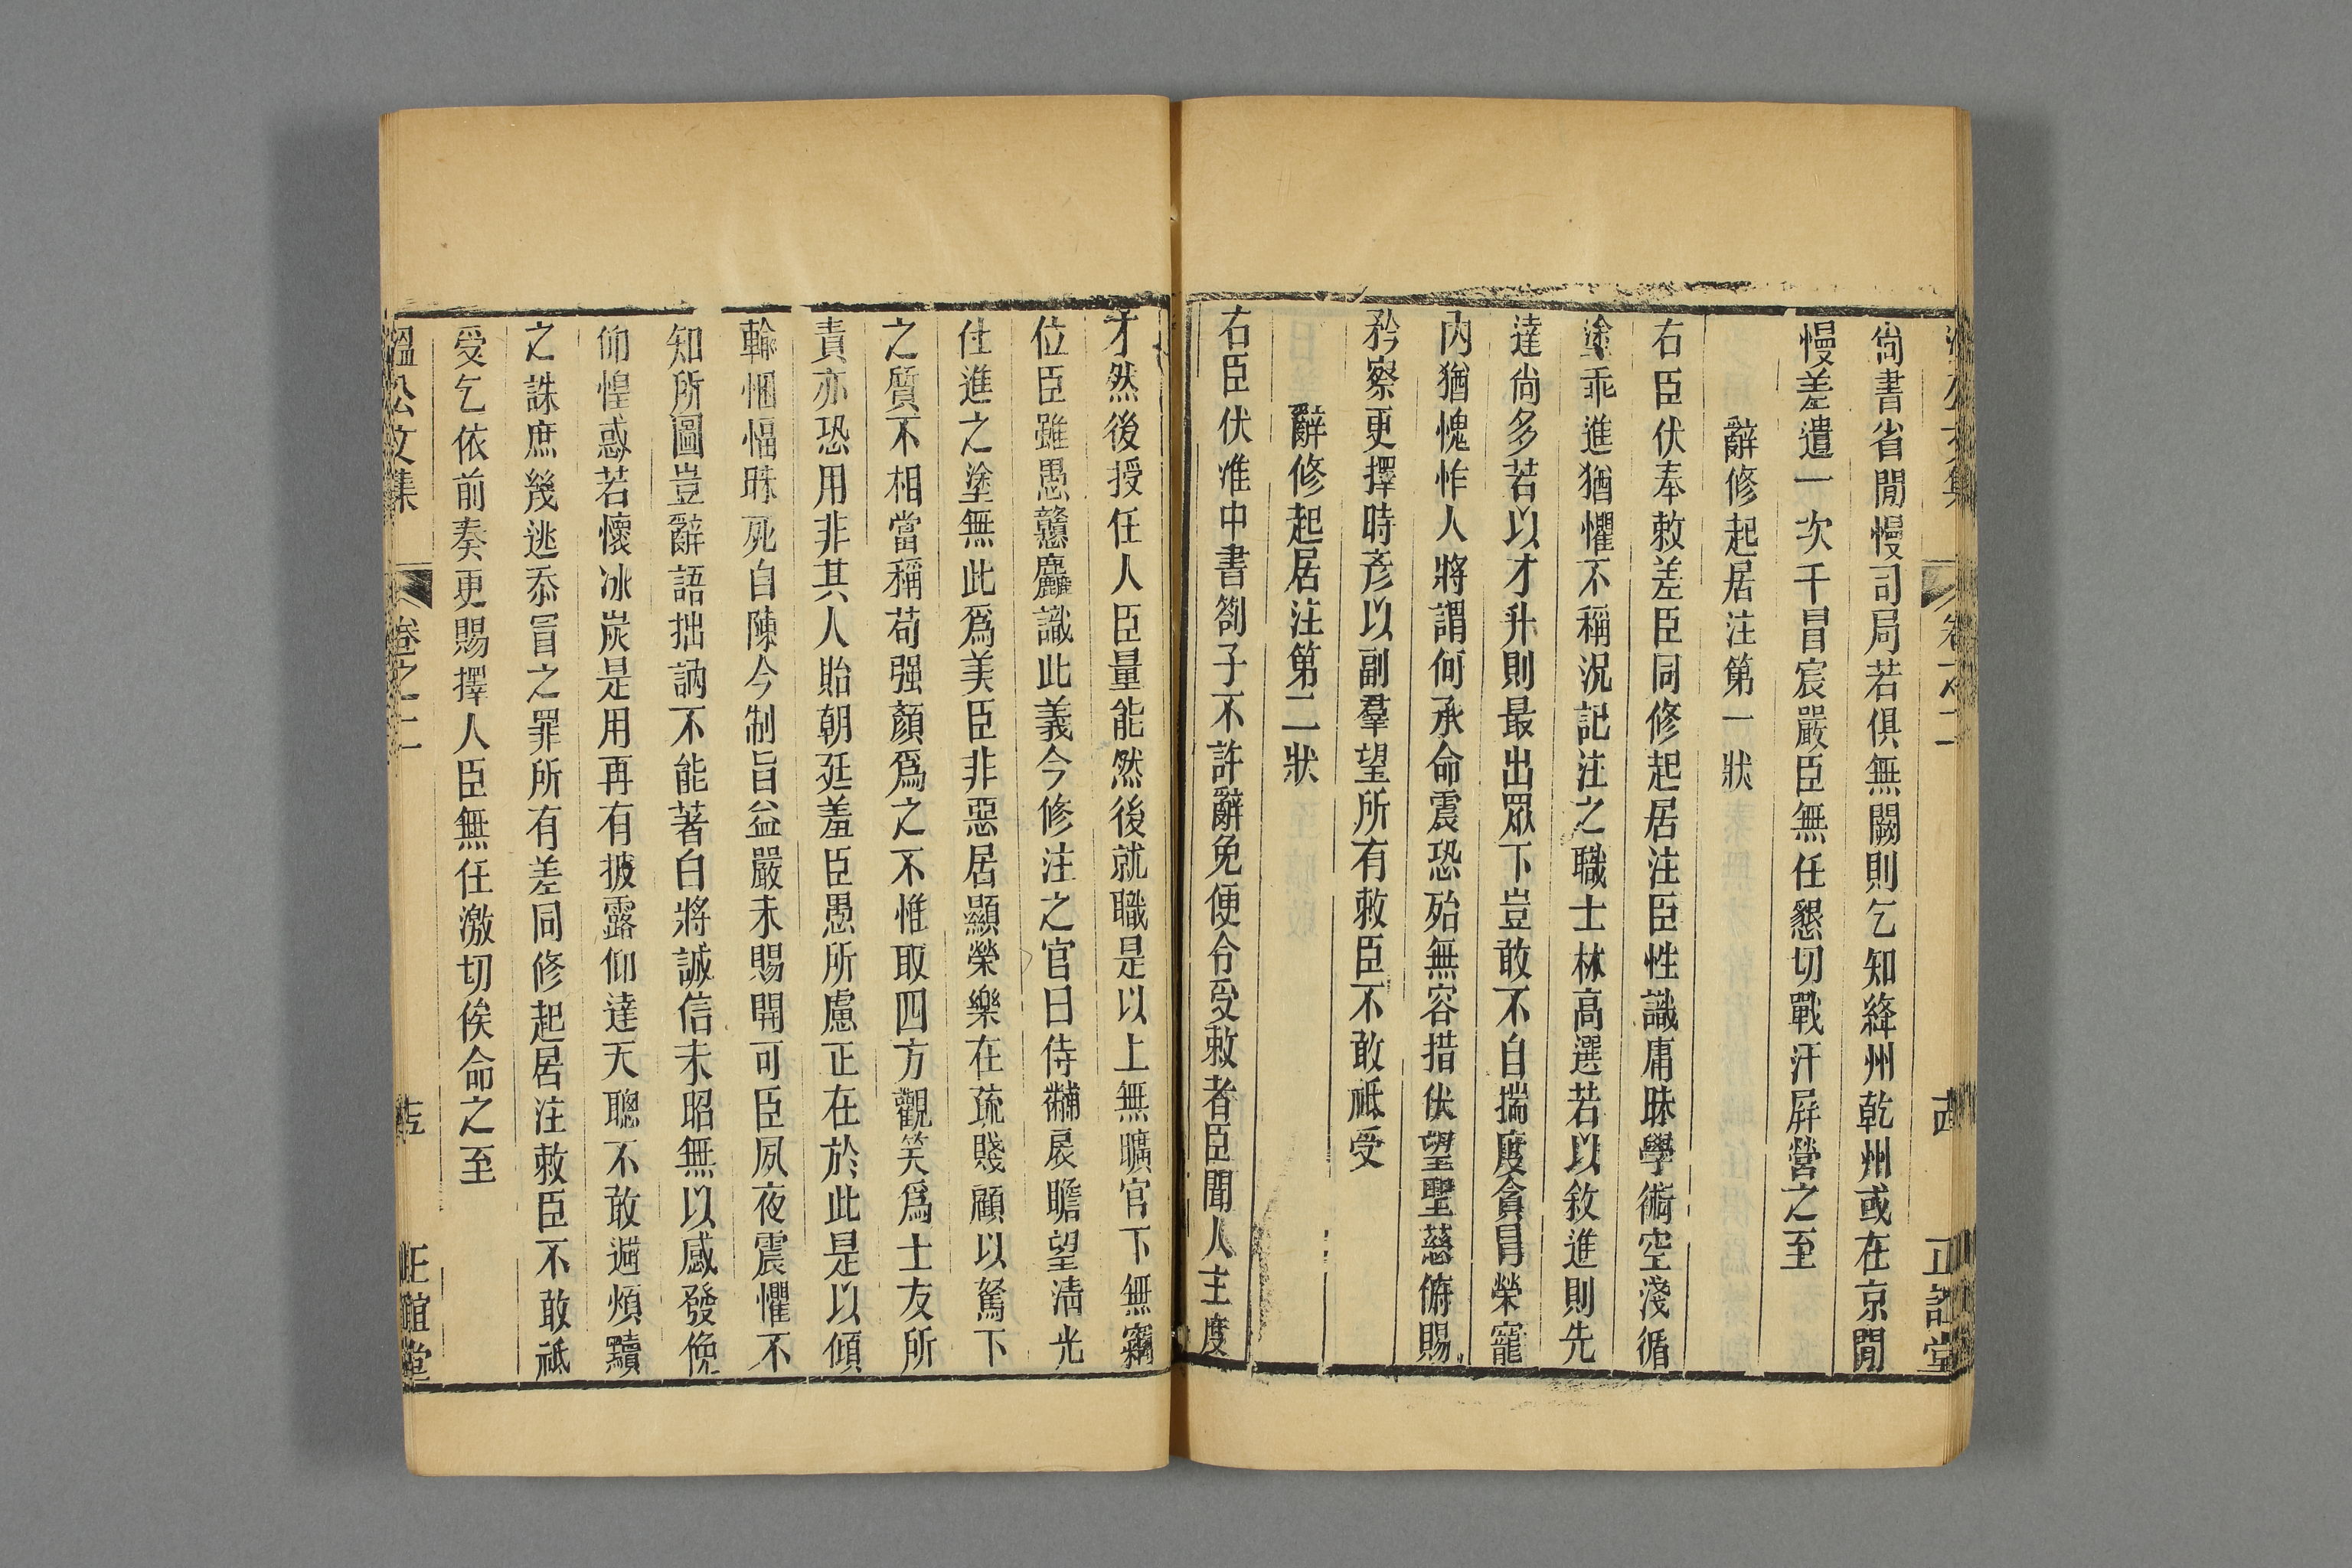 尚書省閒慢司局若俱無闕則乞知絳州乾州或在京閒
慢差遣一次干冒宸嚴臣無任懇切戰汗屏營之至
辭修起居注第一狀
右臣伏奉敕差臣同修起居注臣性識庸昧學術空淺循
塗乖進猶懼不稱況記注之職士林高選若以敘進則先
達尚多若以才升則最出眾下豈敢不自揣度貪冒榮寵
內猶愧怍人將謂何承命震恐殆無容措伏望聖慈俯賜
矜察更擇時彥以副羣望所有敕臣不敢祗受
辭修起居注第二狀
右臣伏准中書劄子不許辭免便令受敕者臣聞人主度
才然後授任人臣量能然後就職是以上無曠官下無竊
位臣雖愚戇麤識此義今修注之官日侍黼扆瞻望清光
仕進之塗無此爲美臣非惡居顯榮樂在疏賤顧以駑下
之質不相當稱苟强顏爲之不惟取四方觀笑爲士友所
責亦恐用非其人貽朝廷羞臣愚所慮正在於此是以傾
輸悃愊昧死自陳今制旨益嚴未賜開可臣夙夜震懼不
知所圖豈辭語拙訥不能著白將誠信未昭無以感發俛
仰惶惑若懷冰炭是用再有披露仰達天聰不敢逃煩黷
之誅庶幾逃忝冒之罪所有差同修起居注敕臣不敢祗
受乞依前奏更賜擇人臣無任激切俟命之至
溫公文集
卷之二
正誼堂